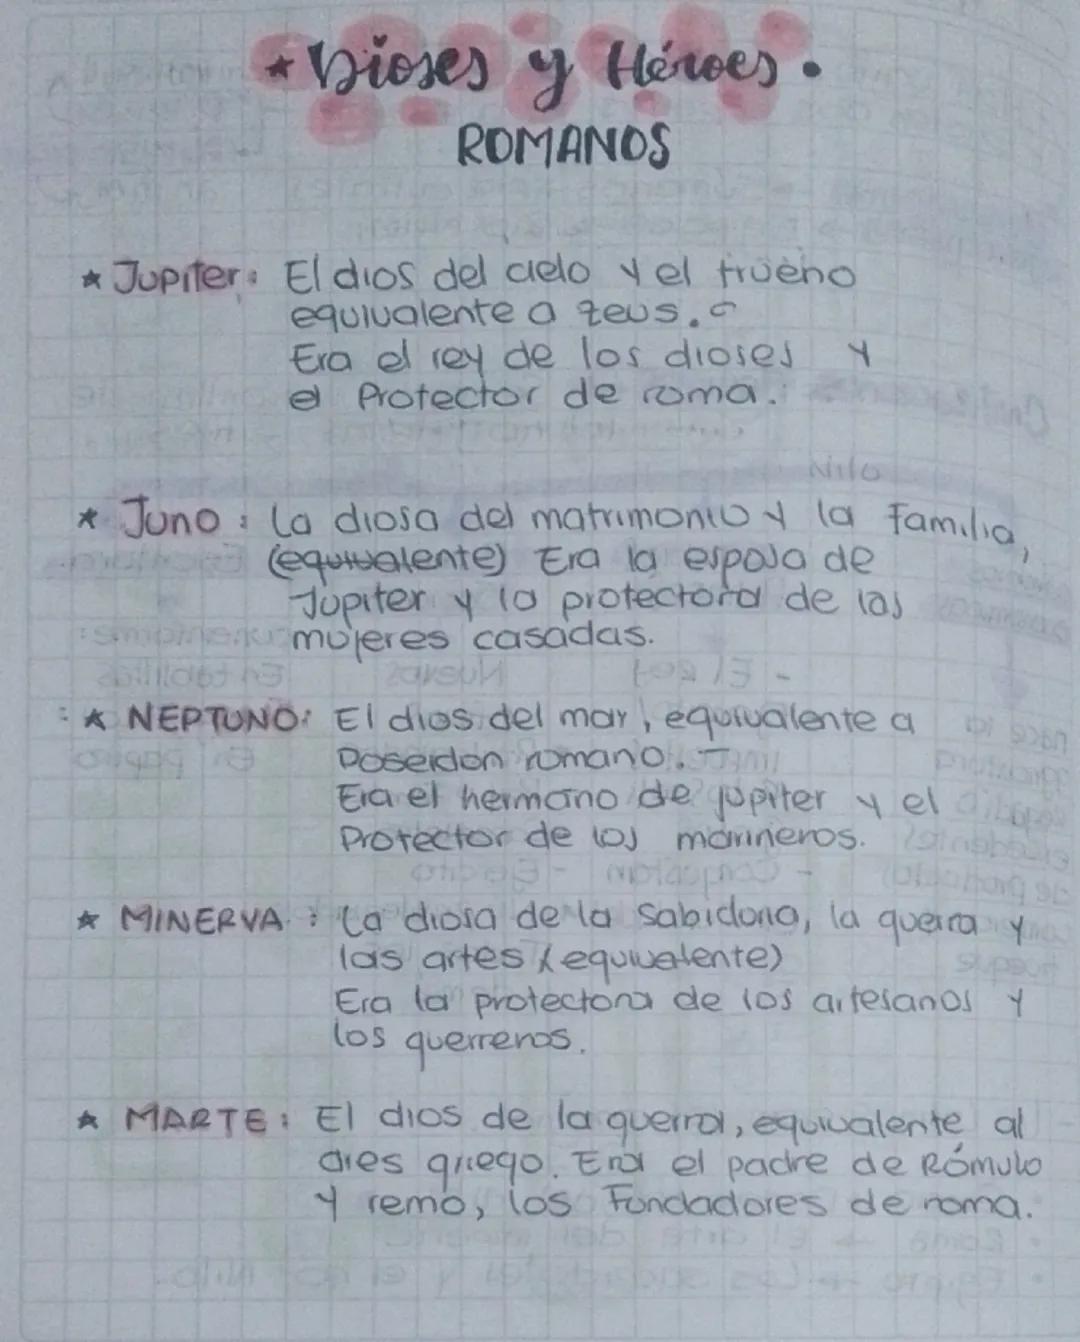 ★ Dioses y Héroes •
ROMANOS
★ Jupiter: El dios del cielo y el trueno
equivalente a zeus.
Era el rey de los dioses y
el Protector de roma.
★ Juno: La diosa del matrimonio y la familia,
(equivalente) Era la esposa de
Jupiter y la protectora de las
mujeres casadas.
★ NEPTUNO: El dios del mar, equivalente a
Poseidon romano.
Era el hermano de jupiter y el
Protector de los marineros.
★ MINERVA: La diosa de la sabiduria, la guerra y
las artes (equivalente)
Era la protectora de los artesanos y
los guerreros.
★ MARTE: El dios de la guerra, equivalente al
ares griego. Era el padre de Rómulo
y remo, los Fundadores de roma.